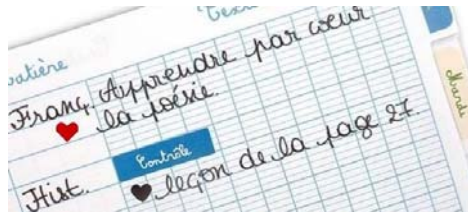 matière
Franç. Apprendre par cœur
la poésie.
Contrôle
Hist. leçon de la page 27.
Mardi